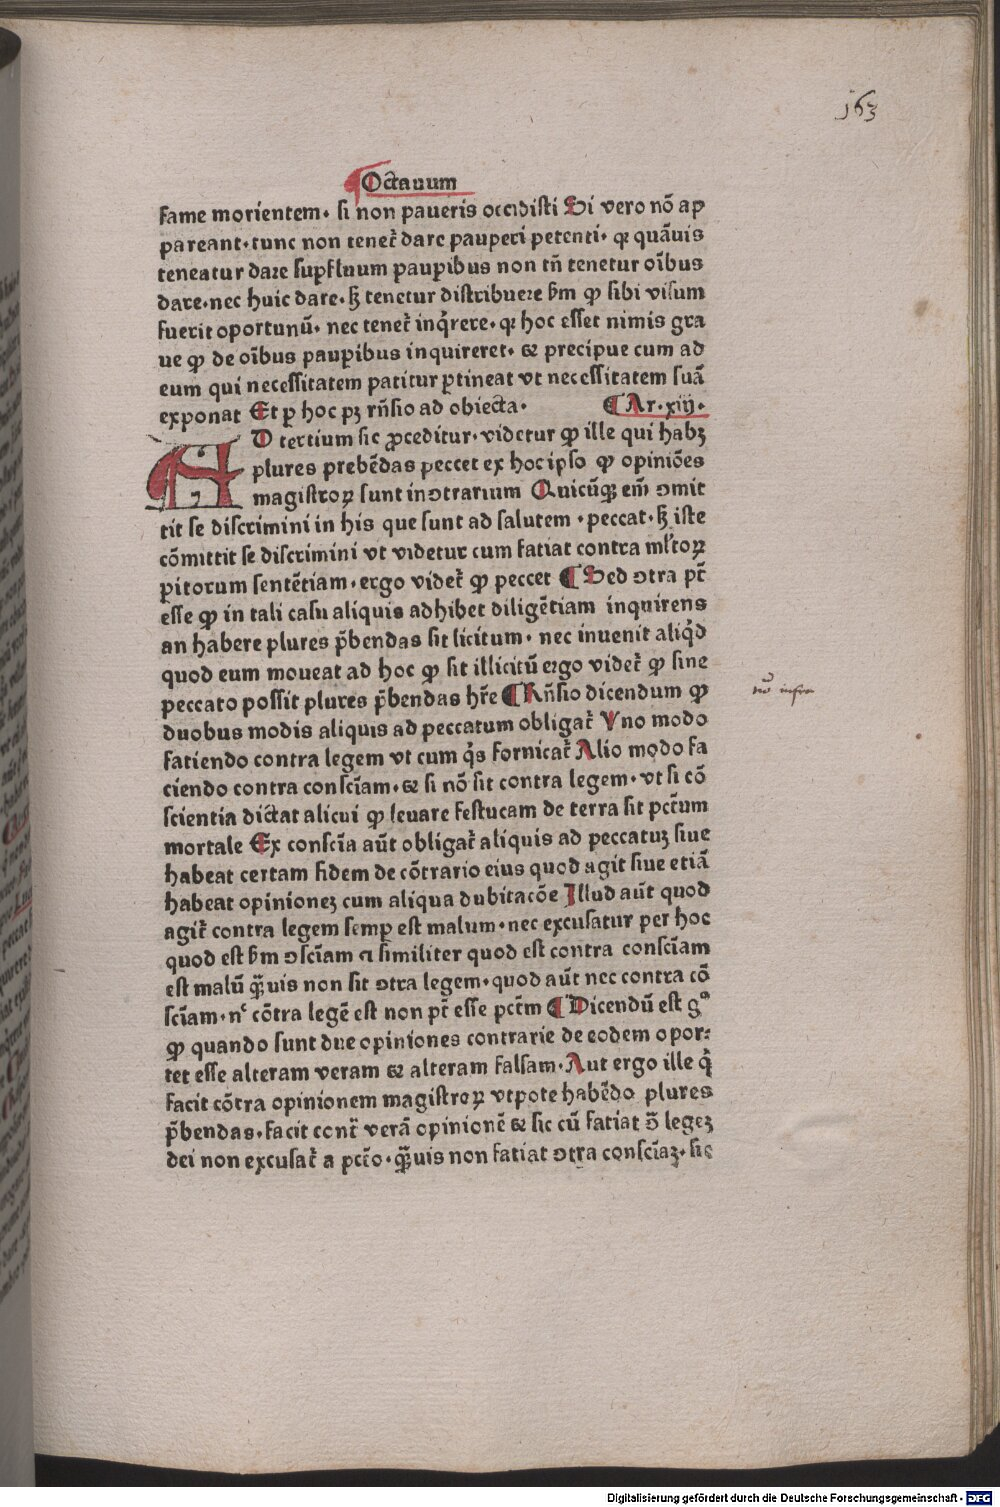 163
Octauum
fame morientem. si non paueris occidisti Si vero nõ ap
pareant. tunc non tenet̃ dare pauperi petenti. qꝛ quãuis
teneatur dare suꝑfluum pauꝑibus non tñ tenetur oĩbus
dare. nec huic dare. ꝫ tenetur distribuere ẜm ꝙ sibi visum
fuerit oportunũ. nec tenet̃ inq̃rere. qꝛ hoc esset nimis gra
ue ꝙ de oĩbus pauꝑibus inquireret. ⁊ precipue cum ad
eum qui necessitatem patitur ꝑtineat vt necessitatem suã
exponat Et ꝑ hoc pꝫ rñsio ad obiecta. ¶ Ar. xiij.
AD tertium sic ꝓceditur. videtur ꝙ ille qui habꝫ
plures prebẽdas peccet ex hoc ipso ꝙ opiniões
magistroꝝ sunt in ꝯtrarium Quicũqꝫ em̃ ꝯmit
tit se discrimini in his que sunt ad salutem . peccat. ꝫ iste
cõmittit se discrimini vt videtur cum fatiat contra ml̃toꝝ
pitorum sentẽtiam. ergo videt̃ ꝙ peccet ¶ Sed ꝯtra pt̃
esse ꝙ in tali casu aliquis adhibet diligẽtiam inquirens
an habere plures p̃bendas sit licitum. nec inuenit aliq̃d
quod eum moueat ad hoc ꝙ sit illicitũ ergo videt̃ ꝙ sine
peccato possit plures p̃bendas hr̃e ¶ Rñsio dicendum ꝙ
no infra
duobus modis aliquis ad peccatum obligat̃ Vno modo
fatiendo contra legem vt cum q̃s fornicat̃ Alio modo fa
ciendo contra consciam̃. ⁊ si nõ sit contra legem. vt si cõ
scientia dictat alicui ꝙ leuare festucam de terra sit pctm̃
mortale Ex conscia̅ aũt obligat̃ aliquis ad peccatuꝫ siue
habeat certam fidem de cõtrario eius quod agit siue etiã
habeat opinioneꝫ cum aliqua dubitacõe Illud aũt quod
agit̃ contra legem semꝑ est malum. nec excusatur per hoc
quod est ẜm ꝯsciam̃ ⁊ similiter quod est contra consciam̃
est malũ q̃ꝫuis non sit ꝯtra legem. quod aũt nec contra cõ
sciam̃. nᶜ cõtra legẽ est non pt̃ esse pctm̃ ¶ Dicendũ est gᵒ
ꝙ quando sunt due opiniones contrarie de eodem opor⸗
tet esse alteram veram ⁊ alteram falsam. Aut ergo ille q̃
facit cõtra opinionem magistroꝝ vtpote habẽdo plures
p̃bendas. facit cont̃ verã opinionẽ ⁊ sic cũ fatiat ꝯ̃ legeꝫ
dei non excusat̃ a pct̃o. q̃ꝫuis non fatiat ꝯtra consciaꝫ̃. sic
Digitalisierung gefördert durch die Deutsche Forschungsgemeinschaft - DFG